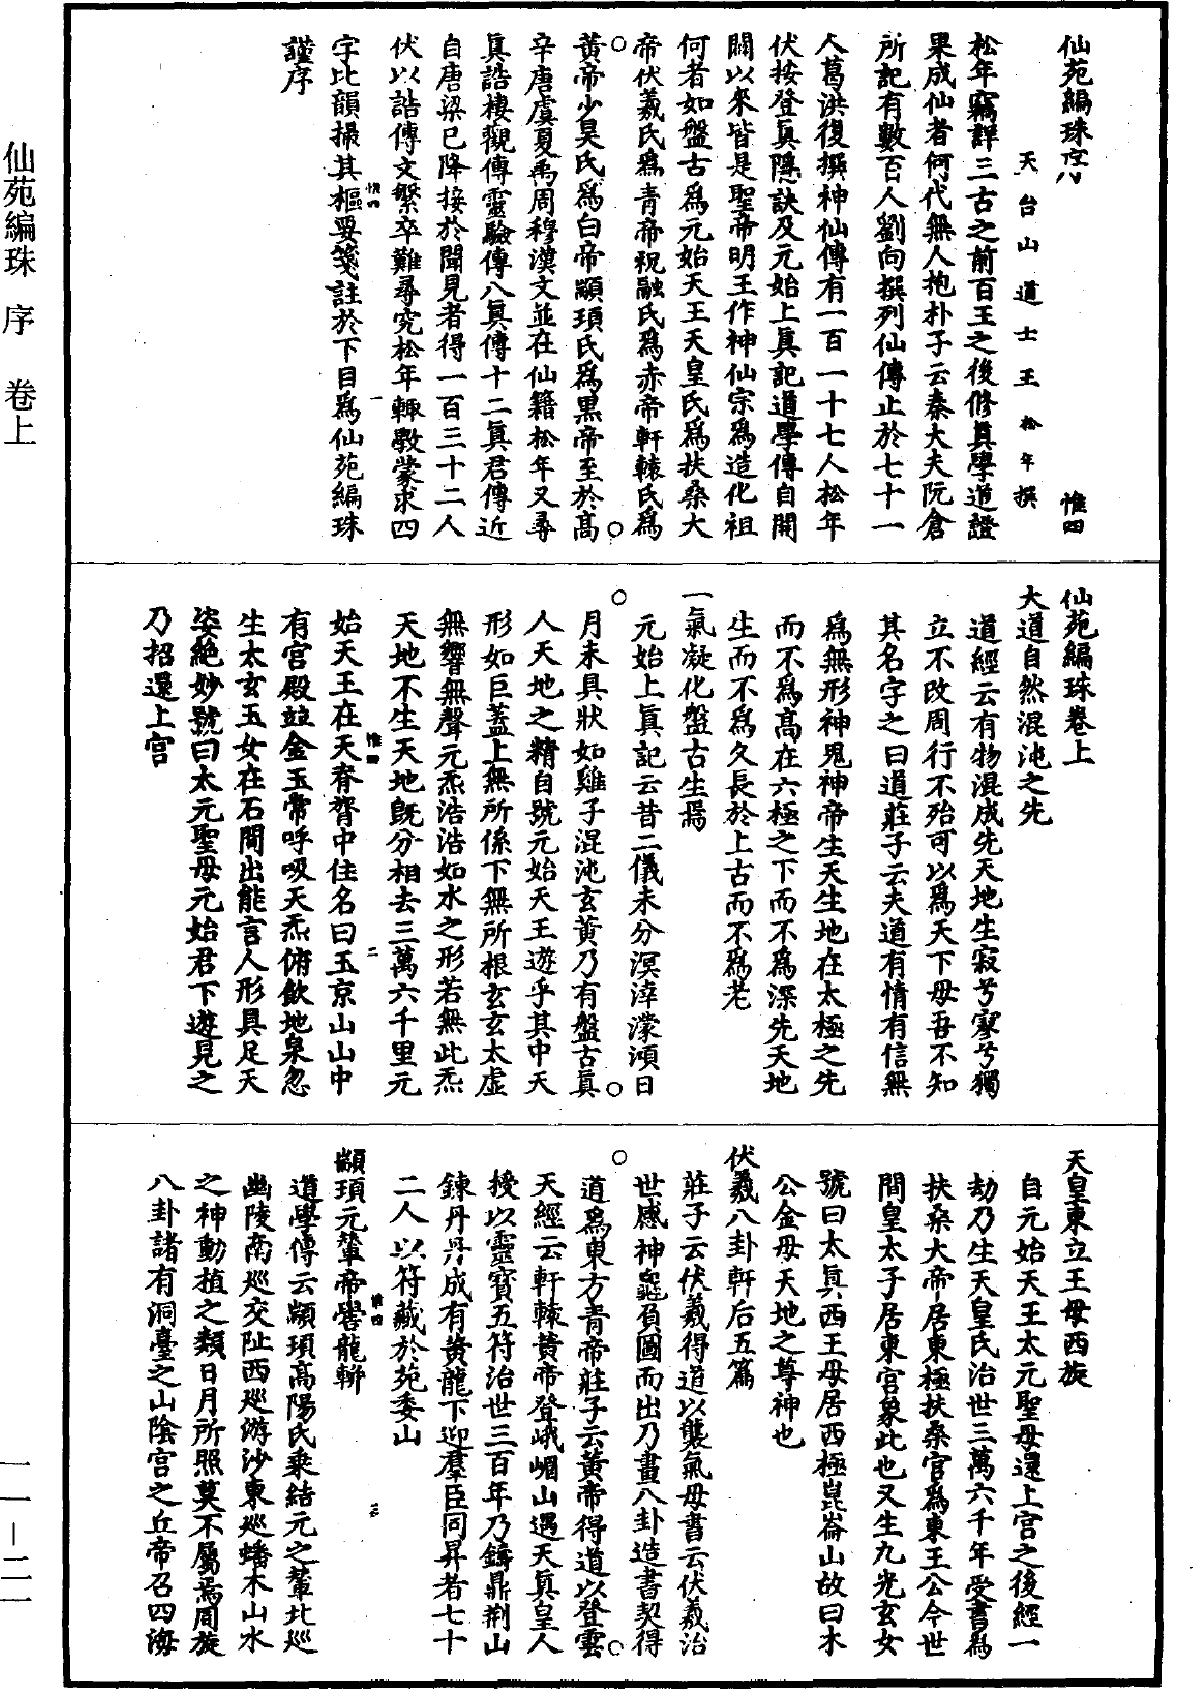 仙苑編珠序
惟四
天台山道士王松年撰
松年竊詳三古之前百王之後修眞學道證
果成仙者何代無人抱朴子云秦大夫阮倉
所記有數百人劉向撰列仙傳止於七十一
人葛洪復撰神仙傳有一百一十七人松年
伏按登眞隱訣及元始上眞記道學傳自開
闢以來皆是聖帝明王作神仙宗爲造化祖
何者如盤古爲元始天王天皇氏爲扶桑大
帝伏羲氏爲青帝祝融氏爲赤帝軒轅氏爲
黄帝少昊氏爲白帝顓頊氏爲黑帝至於高
辛唐虞夏禹周穆漢文並在仙籍松年又尋
眞誥樓觀傳靈驗傳八眞傳十二眞君傳近
自唐梁已降接於聞見者得一百三十二人
伏以誥傳文繁卒難尋究松年輒斆蒙求四
字比韻撮其樞要箋註於下目爲仙苑編珠
謹序
惟四
一
仙苑編珠卷上
大道自然混沌之先
道經云有物混成先天地生寂兮寥兮獨
立不改周行不殆可以爲天下母吾不知
其名字之曰道莊子云夫道有情有信無
爲無形神鬼神帝生天生地在太極之先
而不爲高在六極之下而不爲深先天地
生而不爲久長於上古而不爲老
一氣凝化盤古生焉
元始上眞記云昔二儀未分溟涬濛澒日
月未具狀如雞子混沌玄黄乃有盤古眞
人天地之精自號元始天王遊乎其中天
形如巨蓋上無所係下無所根玄玄太虛
無響無聲元炁浩浩如水之形若無此炁
天地不生天地旣分相去三萬六千里元
始天王在天脊膂中住名曰玉京山山中
有宮殿竝金玉常呼吸天炁俯飲地泉忽
生太玄玉女在石間出能言人形具足天
姿絶妙號曰太元聖母元始君下遊見之
乃招還上宮
惟四
二
天皇東立王母西旋
自元始天王太元聖母還上宮之後經一
劫乃生天皇氏治世三萬六千年受書爲
扶桑大帝居東極扶桑官爲東王公今世
間皇太子居東宮象此也又生九光玄女
號曰太眞西王母居西極崑崙山故曰木
公金母天地之尊神也
伏羲八卦軒后五篇
莊子云伏羲得道以襲氣母書云伏羲治
世感神龜負圖而出乃畫八卦造書契得
道爲東方青帝莊子云黄帝得道以登雲
天經云軒轅黄帝登峨嵋山遇天眞皇人
授以靈寶五符治世三百年乃鑄鼎荆山
鍊丹丹成有黄龍下迎羣臣同昇者七十
二人以符藏於苑委山
顓頊元輦帝嚳龍軿
道學傳云顓頊高陽氏乘結元之輦北巡
幽陵南巡交阯西巡游沙東巡蟠木山水
之神動植之類日月所照莫不屬焉周旋
八卦諸有洞臺之山陰宮之丘帝召四海
惟四
三
仙苑編珠 序 卷上
一一—二一